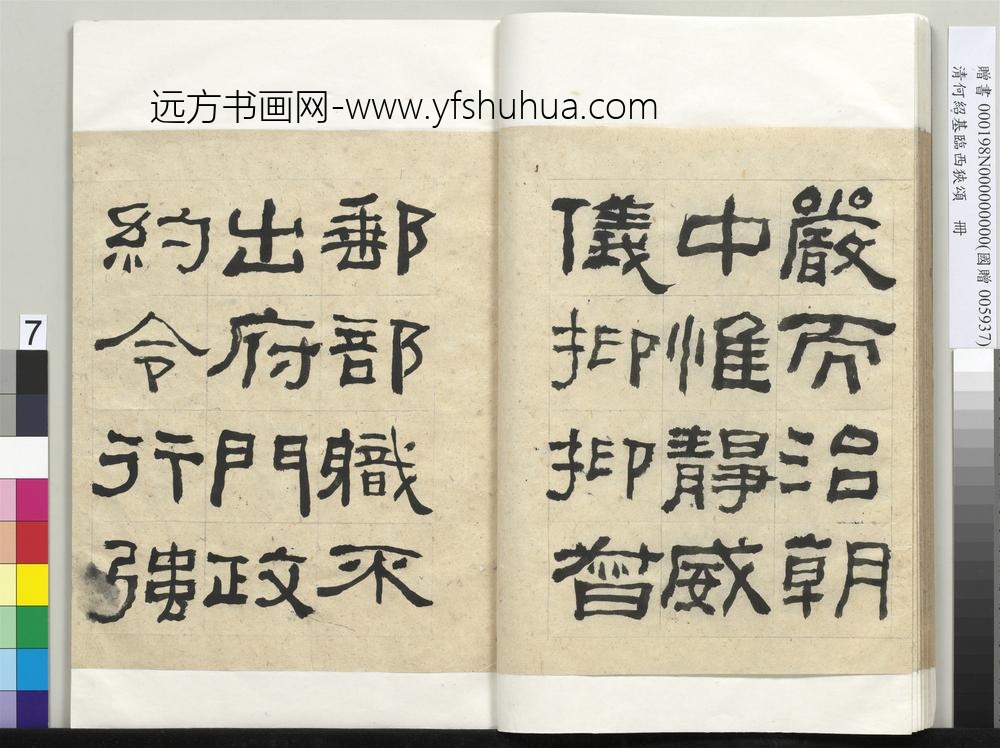 远方书画网-www.yfshuhua.com
贈書 000198N000000000(國贈 005937)
清何紹基臨西狹頌 冊
嚴而治朝
中惟靜威
儀抑抑督
郵部職不
出府門政
約令行強
7